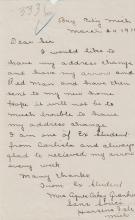 Bay City Mich
March 24 191
Dear Sir
I would like to
have my address change
and have my arrow and
Red Man and have then
sent to my new home
Hope it will not be to
much trouble to have
my address change
I am one of Ex Student
from Carlisle and always
glad to recieved my arrow
every week
Many thanks
From Ex Student
Mrs
Mich